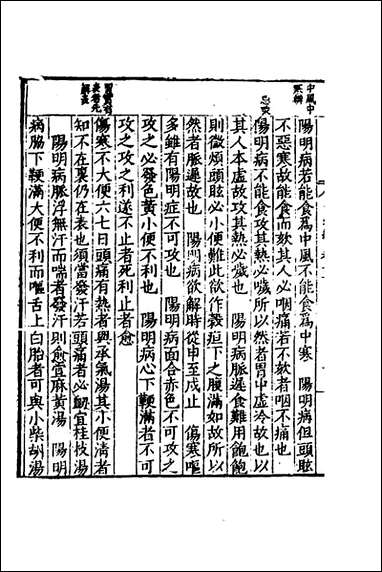 中風中
寒辨
陽明病若能食爲中風不能食爲中寒　陽明病但頭眩
不惡寒故能食而欬其人必咽痛若不欬者咽不痛也
忌攻
陽明病不能食攻其熱必噦也所以然者胃中虛冷故也以
其人本虛故攻其熱必噦也　陽明病脈遲食難用飽飽
則微煩頭眩必小便難此欲作榖疸下之腹滿如故所以
然者脈遲故也　陽明病欲解時從申至戌止　傷寒嘔
多雖有陽明症不可攻也　陽明病面合赤色不可攻之
攻之必發色黃小便不利也　陽明病心下鞕滿者不可
攻之攻之利遂不止者死利止者愈
解表
傷寒不大便六七日頭痛有熱者與承氣湯其小便淸者
知不在裏仍在表也須當發汗若頭痛者必衂宜桂枝湯
陽明病脈浮無汗而喘者發汗則愈宜麻黃湯　陽明
病脇下鞕滿大便不利而嘔舌上白胎者可與小柴胡湯